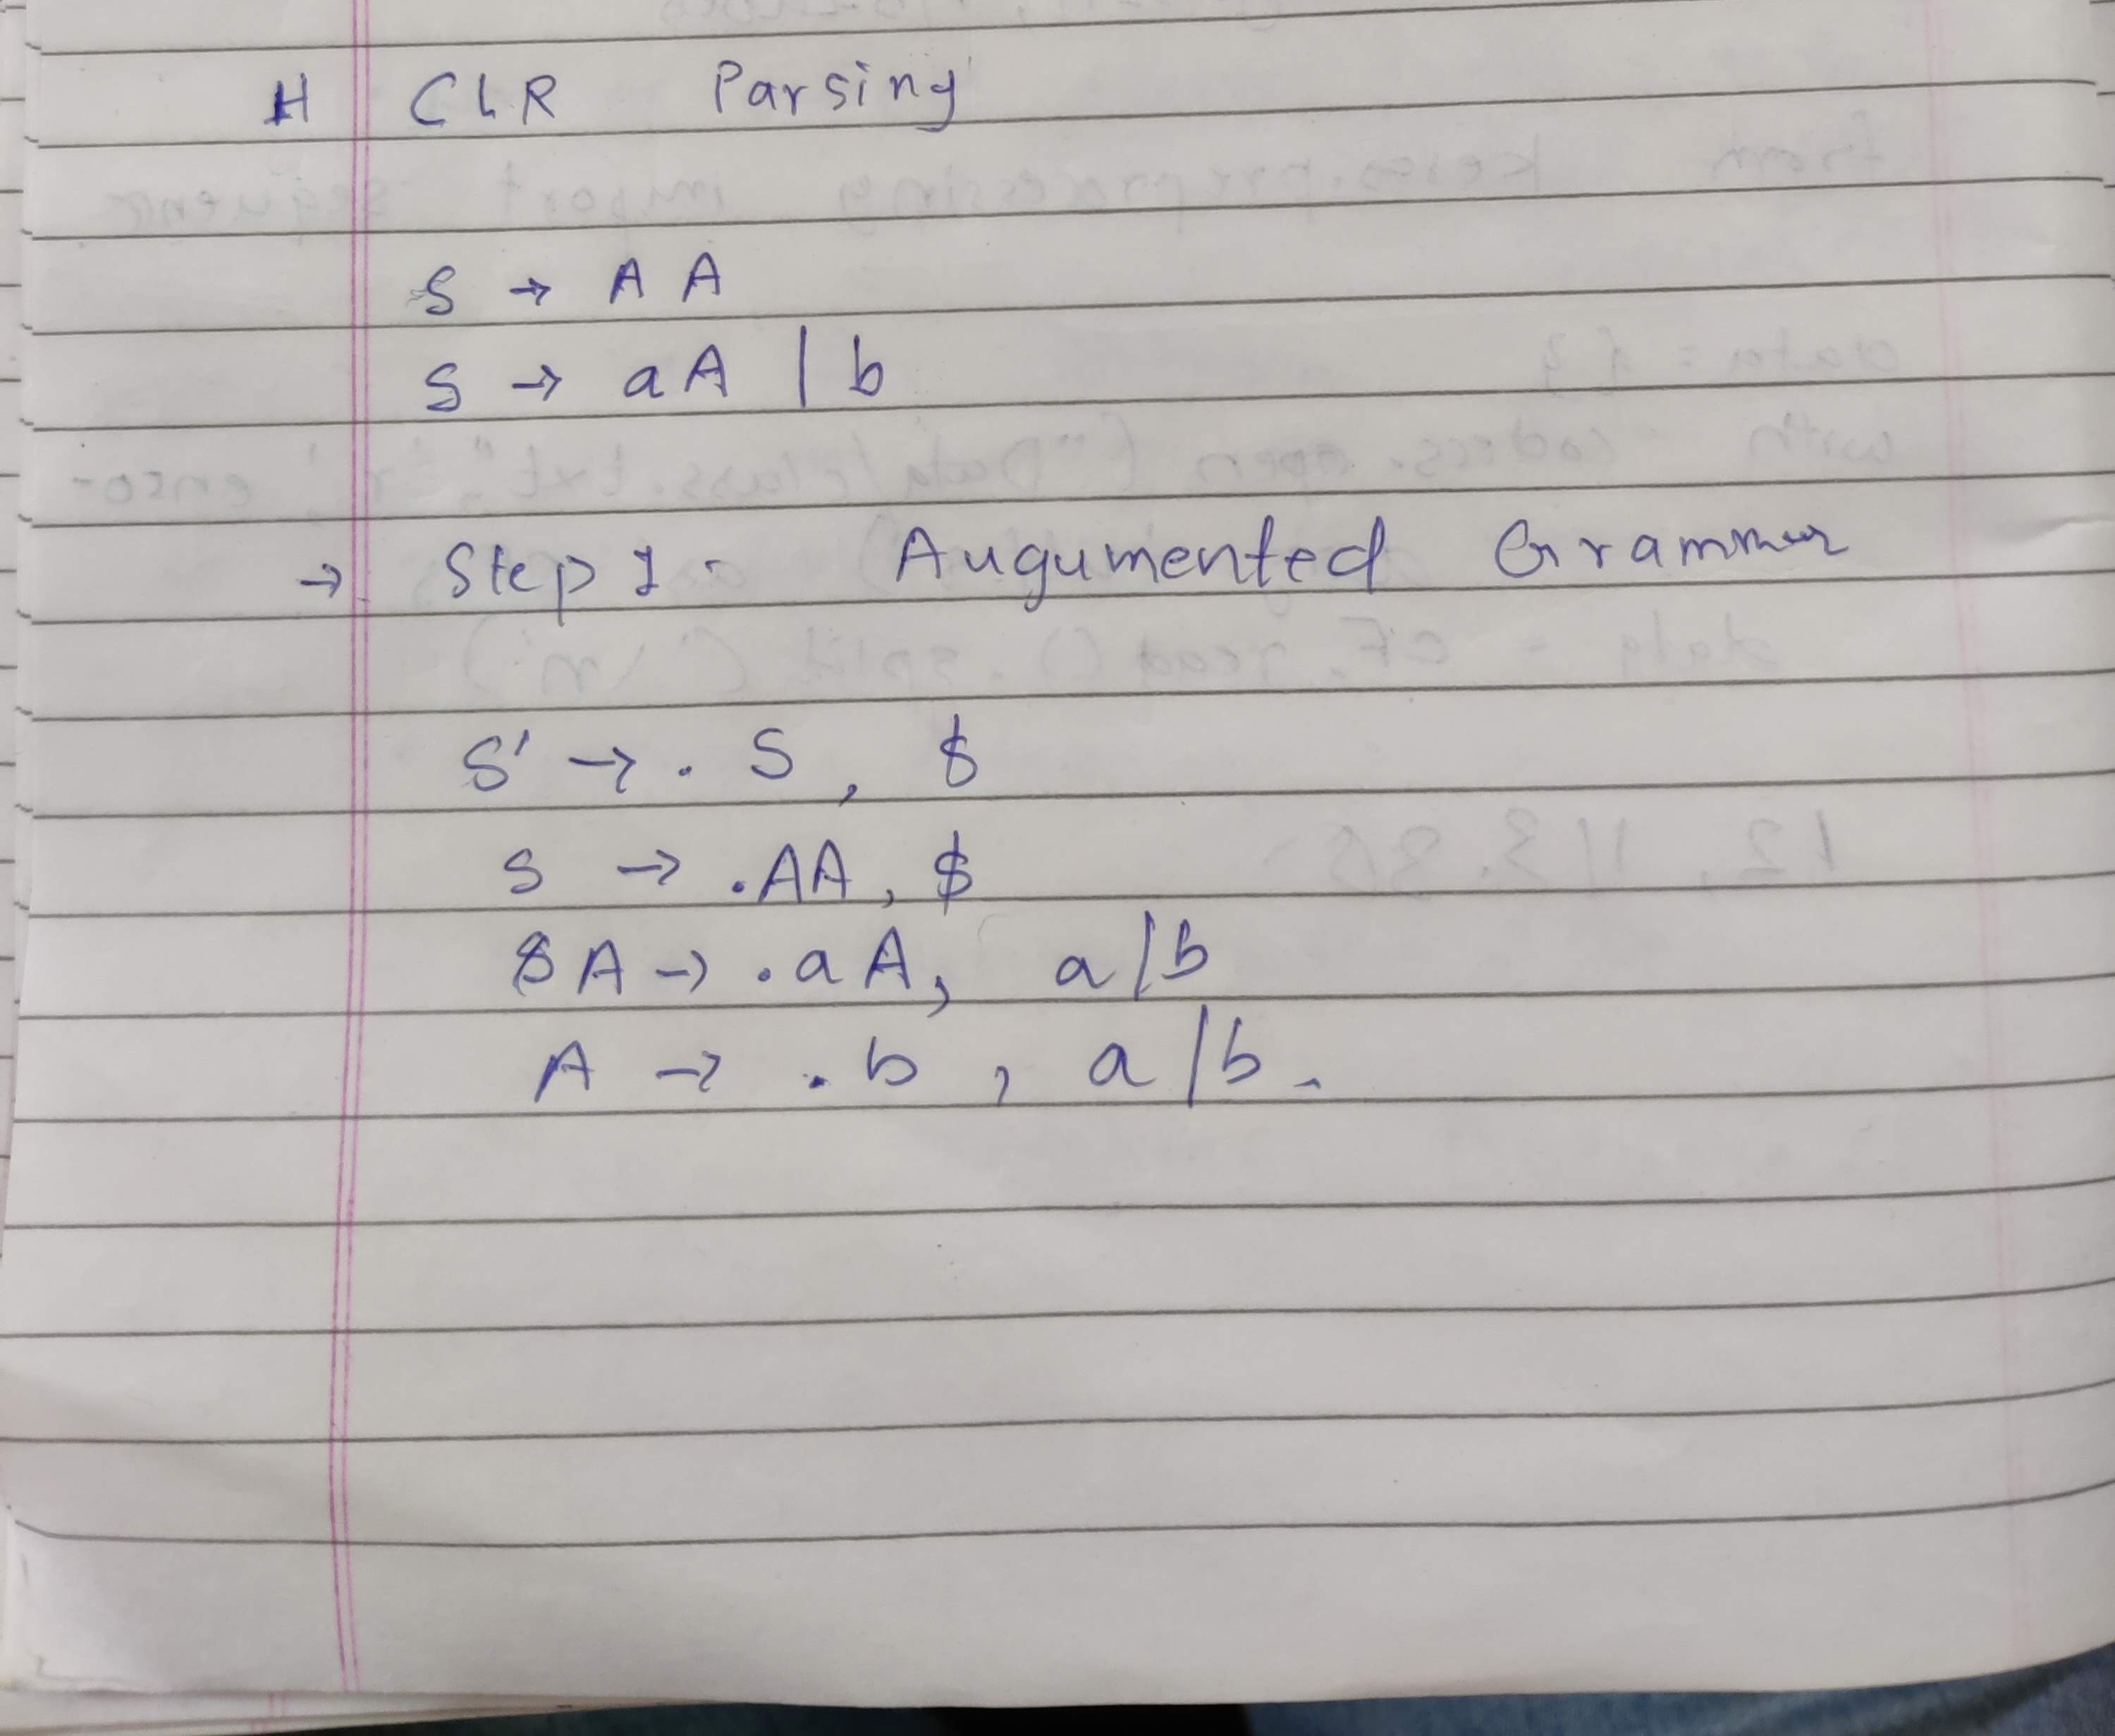 H CLR Parsing
S → A A
S → aA | b
→ Step 1. Augumented Grammer
S' → . S , $
S → .AA , $
A → .aA, a/b
A → .b , a/b.